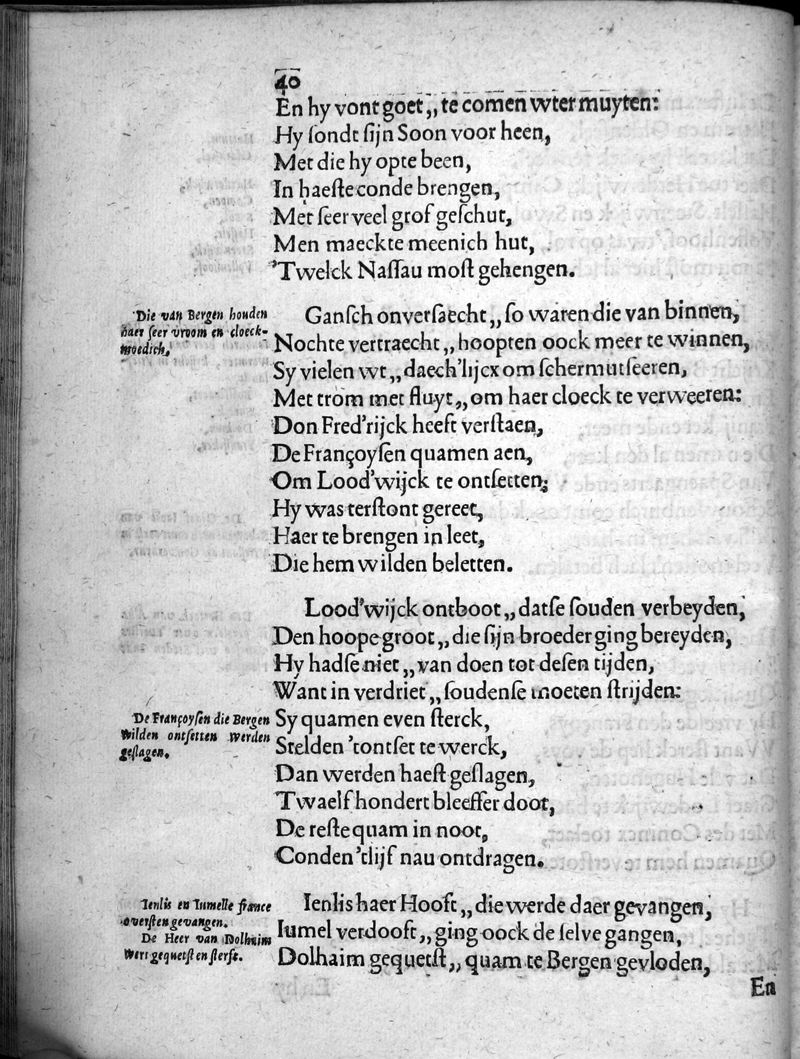 40
En hy vont goet,, te comen wter muyten:
Hy ſondt ſijn Soon voor heen,
Met die hy opte been,
In haeſte conde brengen,
Met ſeer veel grof geſchut,
Men maeckte meenich hut,
'Twelck Naſſau moſt gehengen.
Die van Bergen houden
haer ſeer vroom en cloeck-
moedich.
Ganſch onverſaecht,, ſo waren die van binnen,
Nochte vertraecht,, hoopten oock meer te winnen,
Sy vielen wt,, daech'lijcx om ſchermutſeeren,
Met trom met fluyt,, om haer cloeck te verweeren:
Don Fred'rijck heeft verſtaen,
De Françoyſen quamen aen,
Om Lood'wijck te ontſetten;
Hy was terſtont gereet,
Haer te brengen in leet,
Die hem wilden beletten.
Lood'wijck ontboot,, datſe ſouden verbeyden,
Den hoope groot,, die ſijn broeder ging bereyden,
Hy hadſe niet,, van doen tot deſen tijden,
Want in verdriet,, ſoudenſe moeten ſtrijden:
De Françoyſen die Bergen
wilden ontſetten werden
geſlagen.
Sy quamen even ſterck,
Stelden 'tontſet te werck,
Dan werden haeſt geſlagen,
Twaelf hondert bleeffer doot,
De reſte quam in noot,
Conden 'tlijf nau ontdragen.
Ienlis en Iumelle france
overſten gevangen.
De Heer van Dolhaim
wert gequetſt en ſterft.
Ienlis haer Hooft,, die werde daer gevangen,
Iumel verdooft,, ging oock de ſelve gangen,
Dolhaim gequetſt,, quam te Bergen gevloden,
En